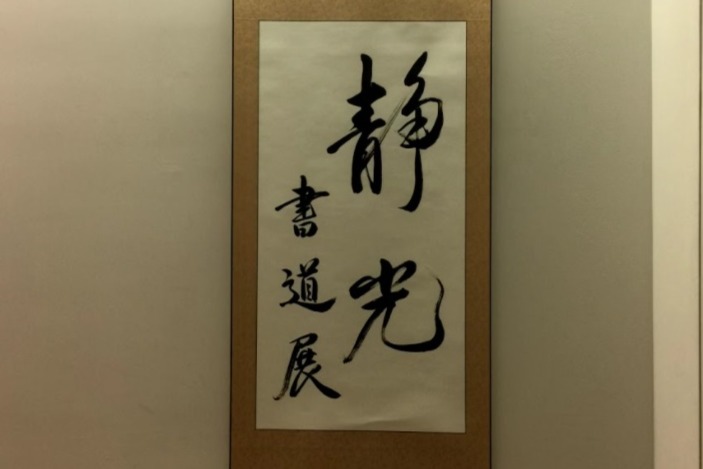 静光
書道展